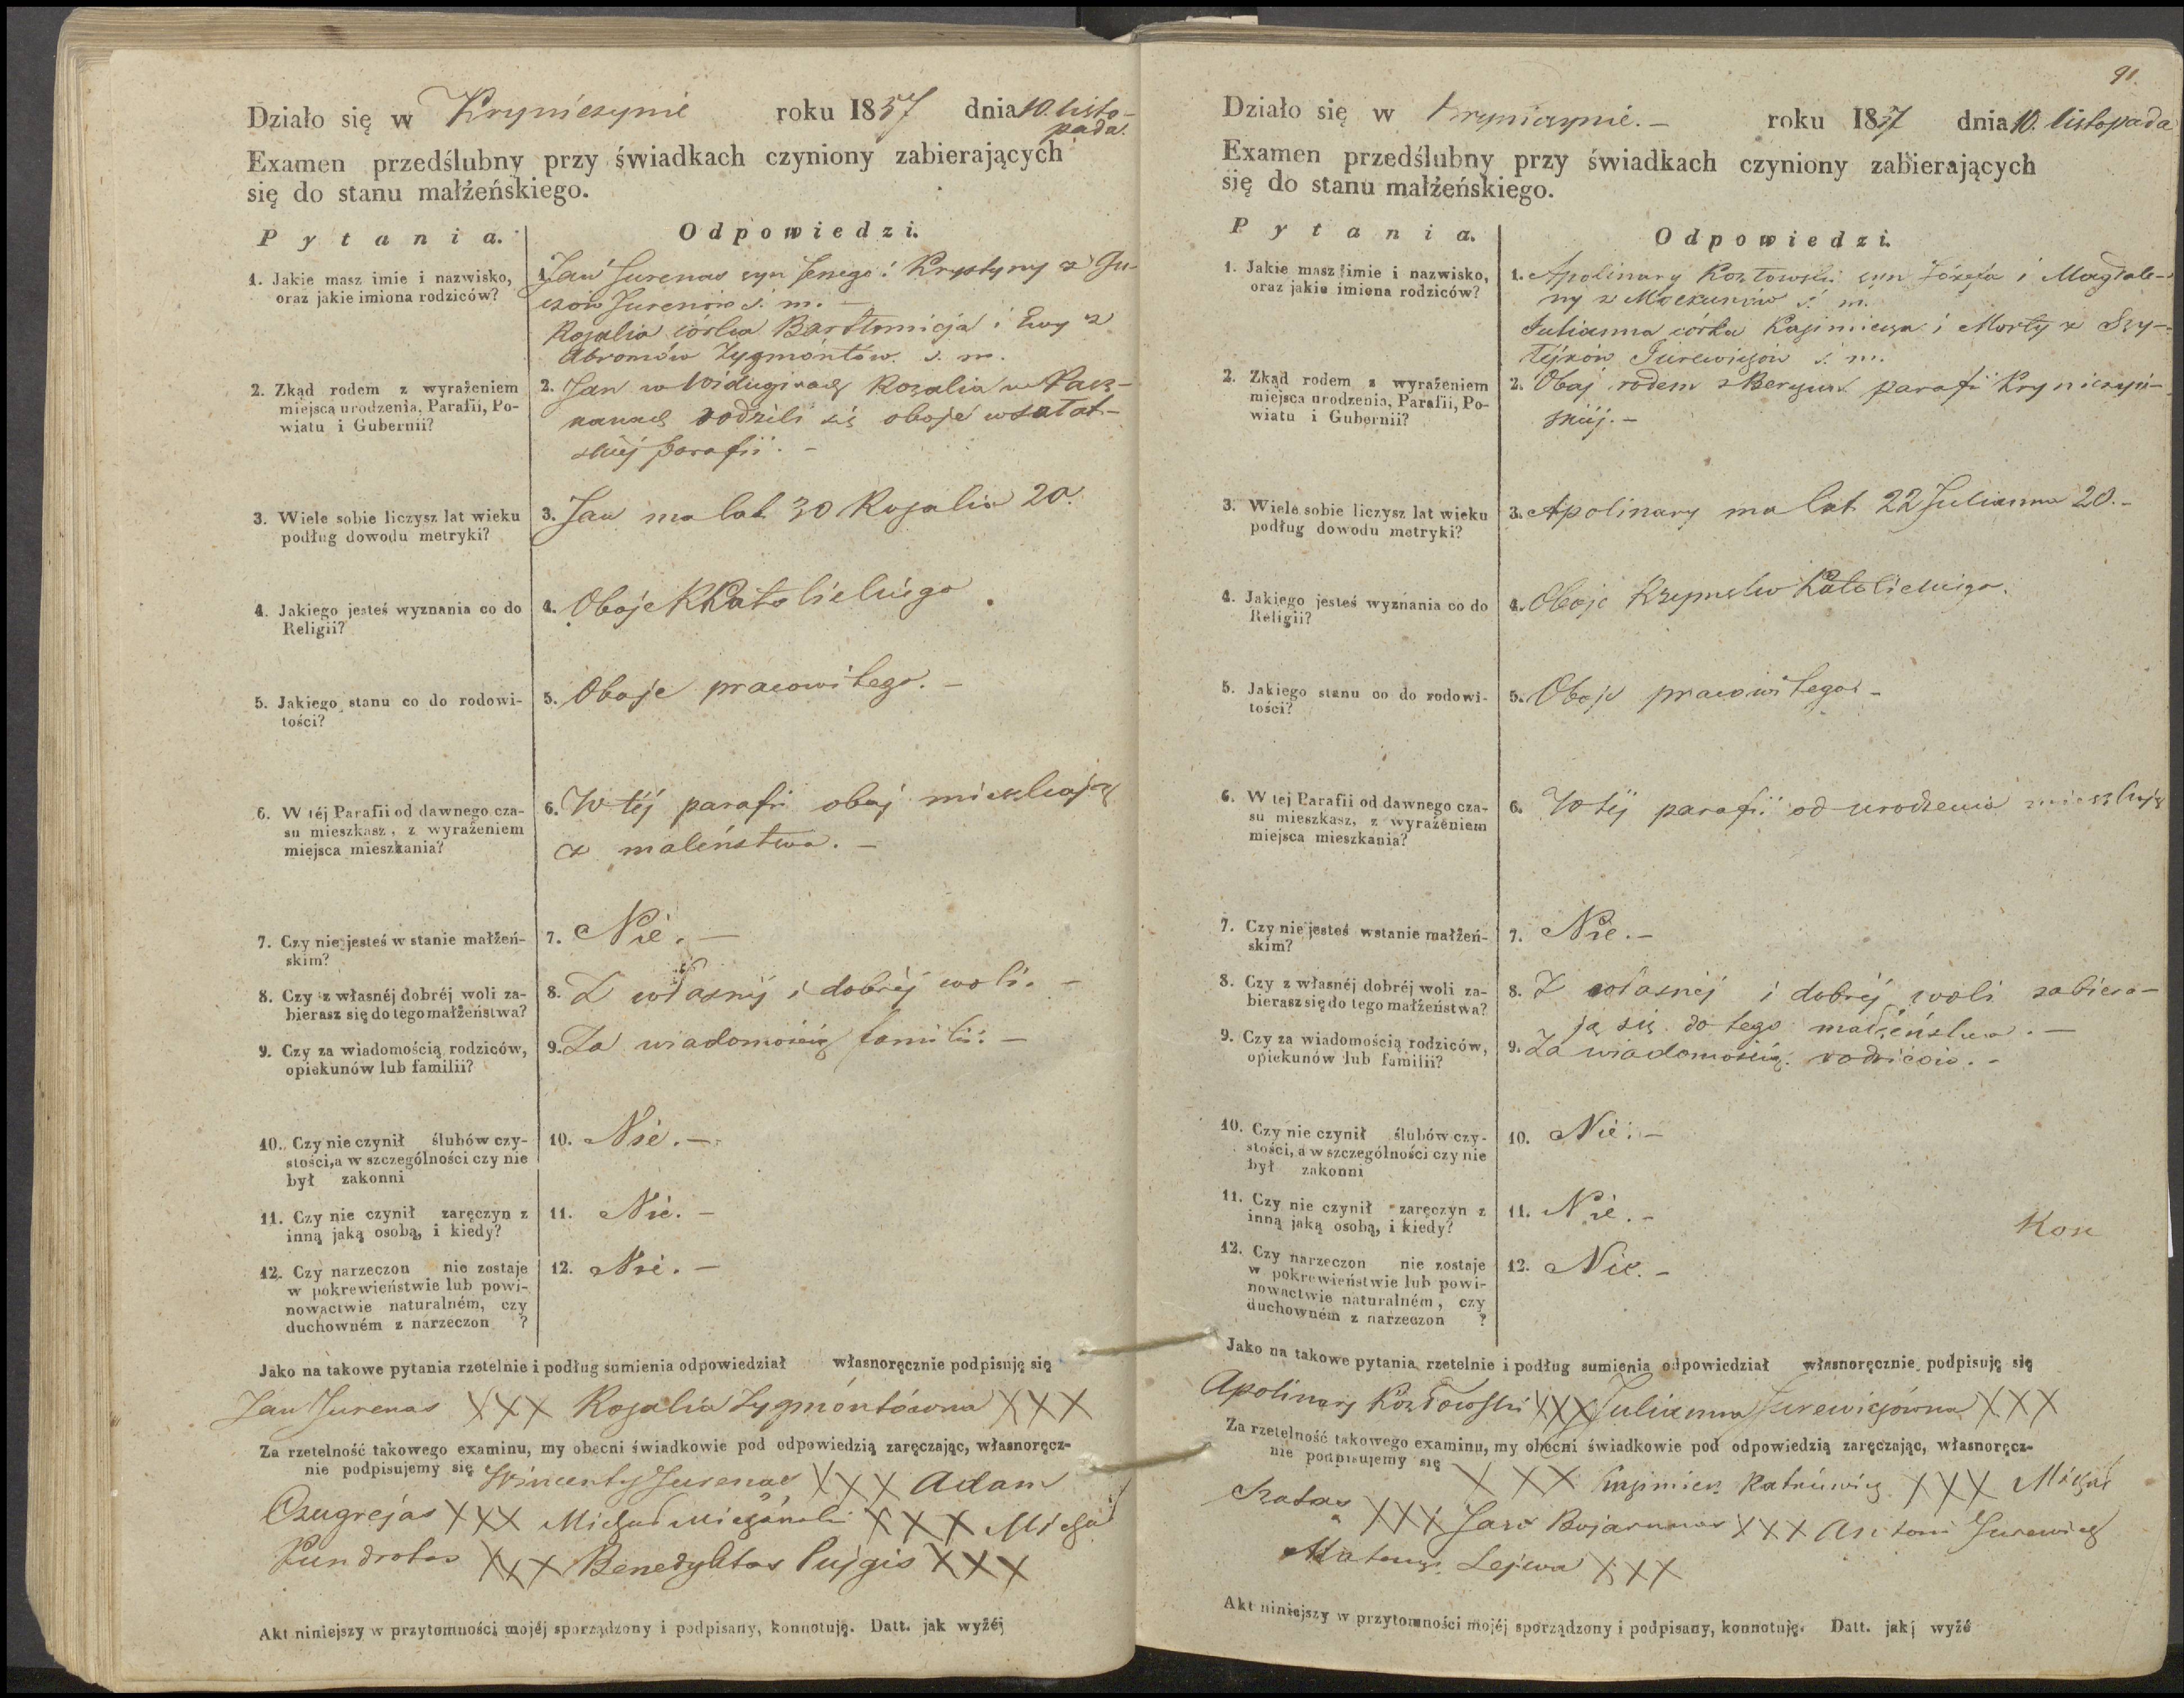 Działo się w Kryniczynie roku 1857 dnia 10. listo-
pada.
Examen przedślubny przy świadkach czyniony zabierających
się do stanu małżeńskiego.
Pytania.
Odpowiedzi.
1. Jakie masz imie i nazwisko,
oraz jakie imiona rodziców?
1. Jan Jurenas syn i Krystyny z
s. m. –
Rozalia córka Bartłomieja i Ewy z
Abromów Zygmóntów. s. m.
2. Zkąd rodem z wyrażeniem
miejsca urodzenia, Parafii, Po-
wiatu i Gubernii?
2. Jan w Rozalia w
rodzili się oboje w
skiéj parafii. –
3. Wiele sobie liczysz lat wieku
podług dowodu metryki?
3. Jan ma lat 30 Rozalia 20.
4. Jakiego jesteś wyznania co do
Religii?
4. Oboje RKatolickiego
5. Jakiego stanu co do rodowi-
tości?
5. Oboje pracowitego. –
6. W téj Parafii od dawnego cza-
su mieszkasz, z wyrażeniem
miejsca mieszkania?
6. W téj parafii obaj mieszkają
z maleństwa. –
7. Czy nie jesteś w stanie małżeń-
skim?
7. Nie. –
8. Czy z własnéj dobréj woli za-
bierasz się do tego małżeństwa?
8. Z własnéj i dobréj woli. –
9. Czy za wiadomością rodziców,
opiekunów lub familii?
9. Za wiadomością familii. –
10. Czy nie czynił ślubów czy-
stości, a w szczególności czy nie
był zakonni
10. Nie. –
11. Czy nie czynił zaręczyn z
inną jaką osobą, i kiedy?
11. Nie. –
12. Czy narzeczon nie zostaje
w pokrewieństwie lub powi-
nowactwie naturalném, czy
duchowném z narzeczon ?
12. Nie. –
Jako na takowe pytania rzetelnie i podług sumienia odpowiedział własnoręcznie podpisuję się
Jan Jurenas XXX Rozalia Zygmóntówna XXX
Za rzetelność takowego examinu, my obecni świadkowie pod odpowiedzią zaręczając, własnoręcz-
nie podpisujemy się Wincenty Jurenas XXX Adam
XXX Michał XXX Michał
Kundrotas XXX Benedyktas Pujgis XXX
Akt niniejszy w przytomności mojéj sporządzony i podpisany, konnotuję. Datt. jak wyźéj
91.
Działo się w Kryniczynie. – roku 1857 dnia 10. listopada
Examen przedślubny przy świadkach czyniony zabierających
się do stanu małżeńskiego.
Pytania.
Odpowiedzi.
1. Jakie masz imie i nazwisko,
oraz jakie imiona rodziców?
1. Apolinary Kozłowski syn Józefa i Magdale-
ny z s. m.
Julianna córka Kazimierza i Marty z Szy-
Jurewiczów s. m.
2. Zkąd rodem z wyrażeniem
miejsca urodzenia, Parafii, Po-
wiatu i Gubernii?
2. Obaj rodem z parafii Kryniczyń-
skiéj. –
3. Wiele sobie liczysz lat wieku
podług dowodu metryki?
3. Apolinary ma lat 22 Julianna 20. –
4. Jakiego jesteś wyznania co do
Religii?
4. Oboje Rzymsko Katolickiego.
5. Jakiego stanu co do rodowi-
tości?
5. Oboje pracowitego –
6. W tej Parafii od dawnego cza-
su mieszkasz, z wyrażeniem
miejsca mieszkania?
6. W téj parafii od urodzenia mieszkają
7. Czy nie jesteś w stanie małżeń-
skim?
7. Nie. –
8. Czy z własnéj dobréj woli za-
bierasz się do tego małżeństwa?
8. Z własnéj i dobréj woli zabiera-
ją się do tego małżeństwa. –
9. Czy za wiadomością rodziców,
opiekunów lub familii?
9. Za wiadomością rodziców. –
10. Czy nie czynił ślubów czy-
stości, a w szczególności czy nie
był zakonni
10. Nie. –
11. Czy nie czynił zaręczyn z
inną jaką osobą, i kiedy?
11. Nie. –
12. Czy narzeczon nie zostaje
w pokrewieństwie lub powi-
nowactwie naturalném, czy
duchowném z narzeczon ?
12. Nie. –
Jako na takowe pytania rzetelnie i podług sumienia odpowiedział własnoręcznie podpisuję się
Apolinary Kozłowski XXX Julianna Jurewiczówna XXX
Za rzetelność takowego examinu, my obecni świadkowie pod odpowiedzią zaręczając, własnoręcz-
nie podpisujemy się XXX Kazimierz XXX Michał
XXX Jan Bojarunas XXX Antoni Jurewicz
Mateusz Lejwa XXX
Akt niniejszy w przytomności mojéj sporządzony i podpisany, konnotuję. Datt. jak j wyźé